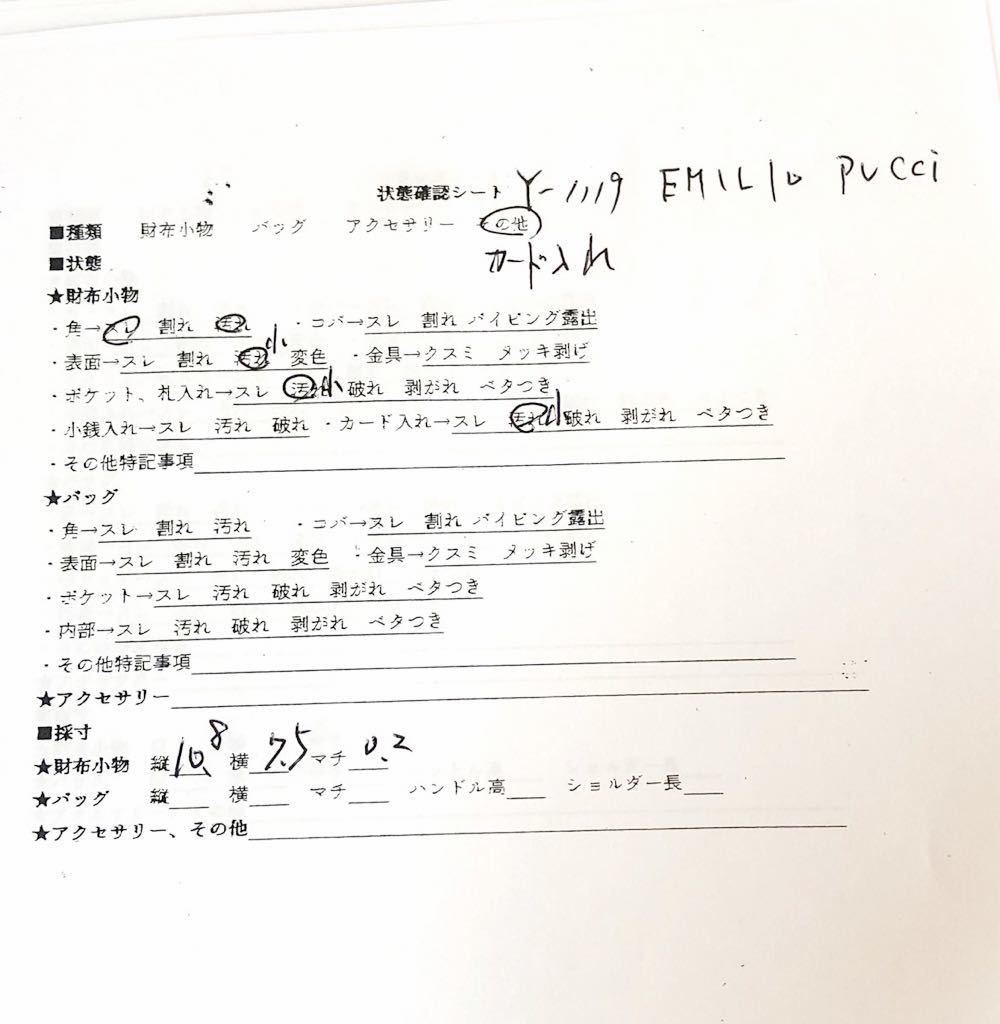 状態確認シート Y-1119 EMILIO PUCCi
■種類 財布小物 バッグ アクセサリー その他
カード入れ
■状態
★財布小物
・角→スレ 割れ 汚れ ・コバ→スレ 割れ パイピング露出
・表面→スレ 割れ 汚れ小 変色 ・金具→クスミ メッキ剥げ
・ポケット、札入れ→スレ 汚れ小 破れ 剥がれ ベタつき
・小銭入れ→スレ 汚れ 破れ ・カード入れ→スレ 汚れ小 破れ 剥がれ ベタつき
・その他特記事項
★バッグ
・角→スレ 割れ 汚れ ・コバ→スレ 割れ パイピング露出
・表面→スレ 割れ 汚れ 変色 ・金具→クスミ メッキ剥げ
・ポケット→スレ 汚れ 破れ 剥がれ ベタつき
・内部→スレ 汚れ 破れ 剥がれ ベタつき
・その他特記事項
★アクセサリー
■採寸
★財布小物 縦10.8 横7.5 マチ0.2
★バッグ 縦 横 マチ ハンドル高 ショルダー長
★アクセサリー、その他